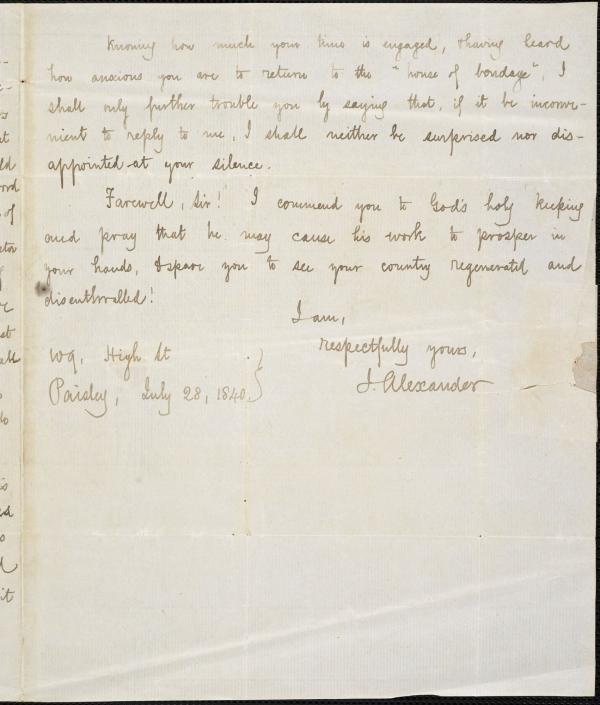 Knowing how much your time is engaged, & having heard
how anxious you are to return to the "house of bondage", I
shall only further trouble you by saying that, if it be inconve-
nient to reply to me, I shall neither be surprised nor dis-
appointed at your silence.
Farewell, Sir! I commend you to God's holy keeping
and pray that he may cause his work to prosper in
your hands, & spare you to see your country regenerated and
disenthralled!
I am,
respectfully yours,
J. Alexander
High St
Paisley, July 28, 1840.